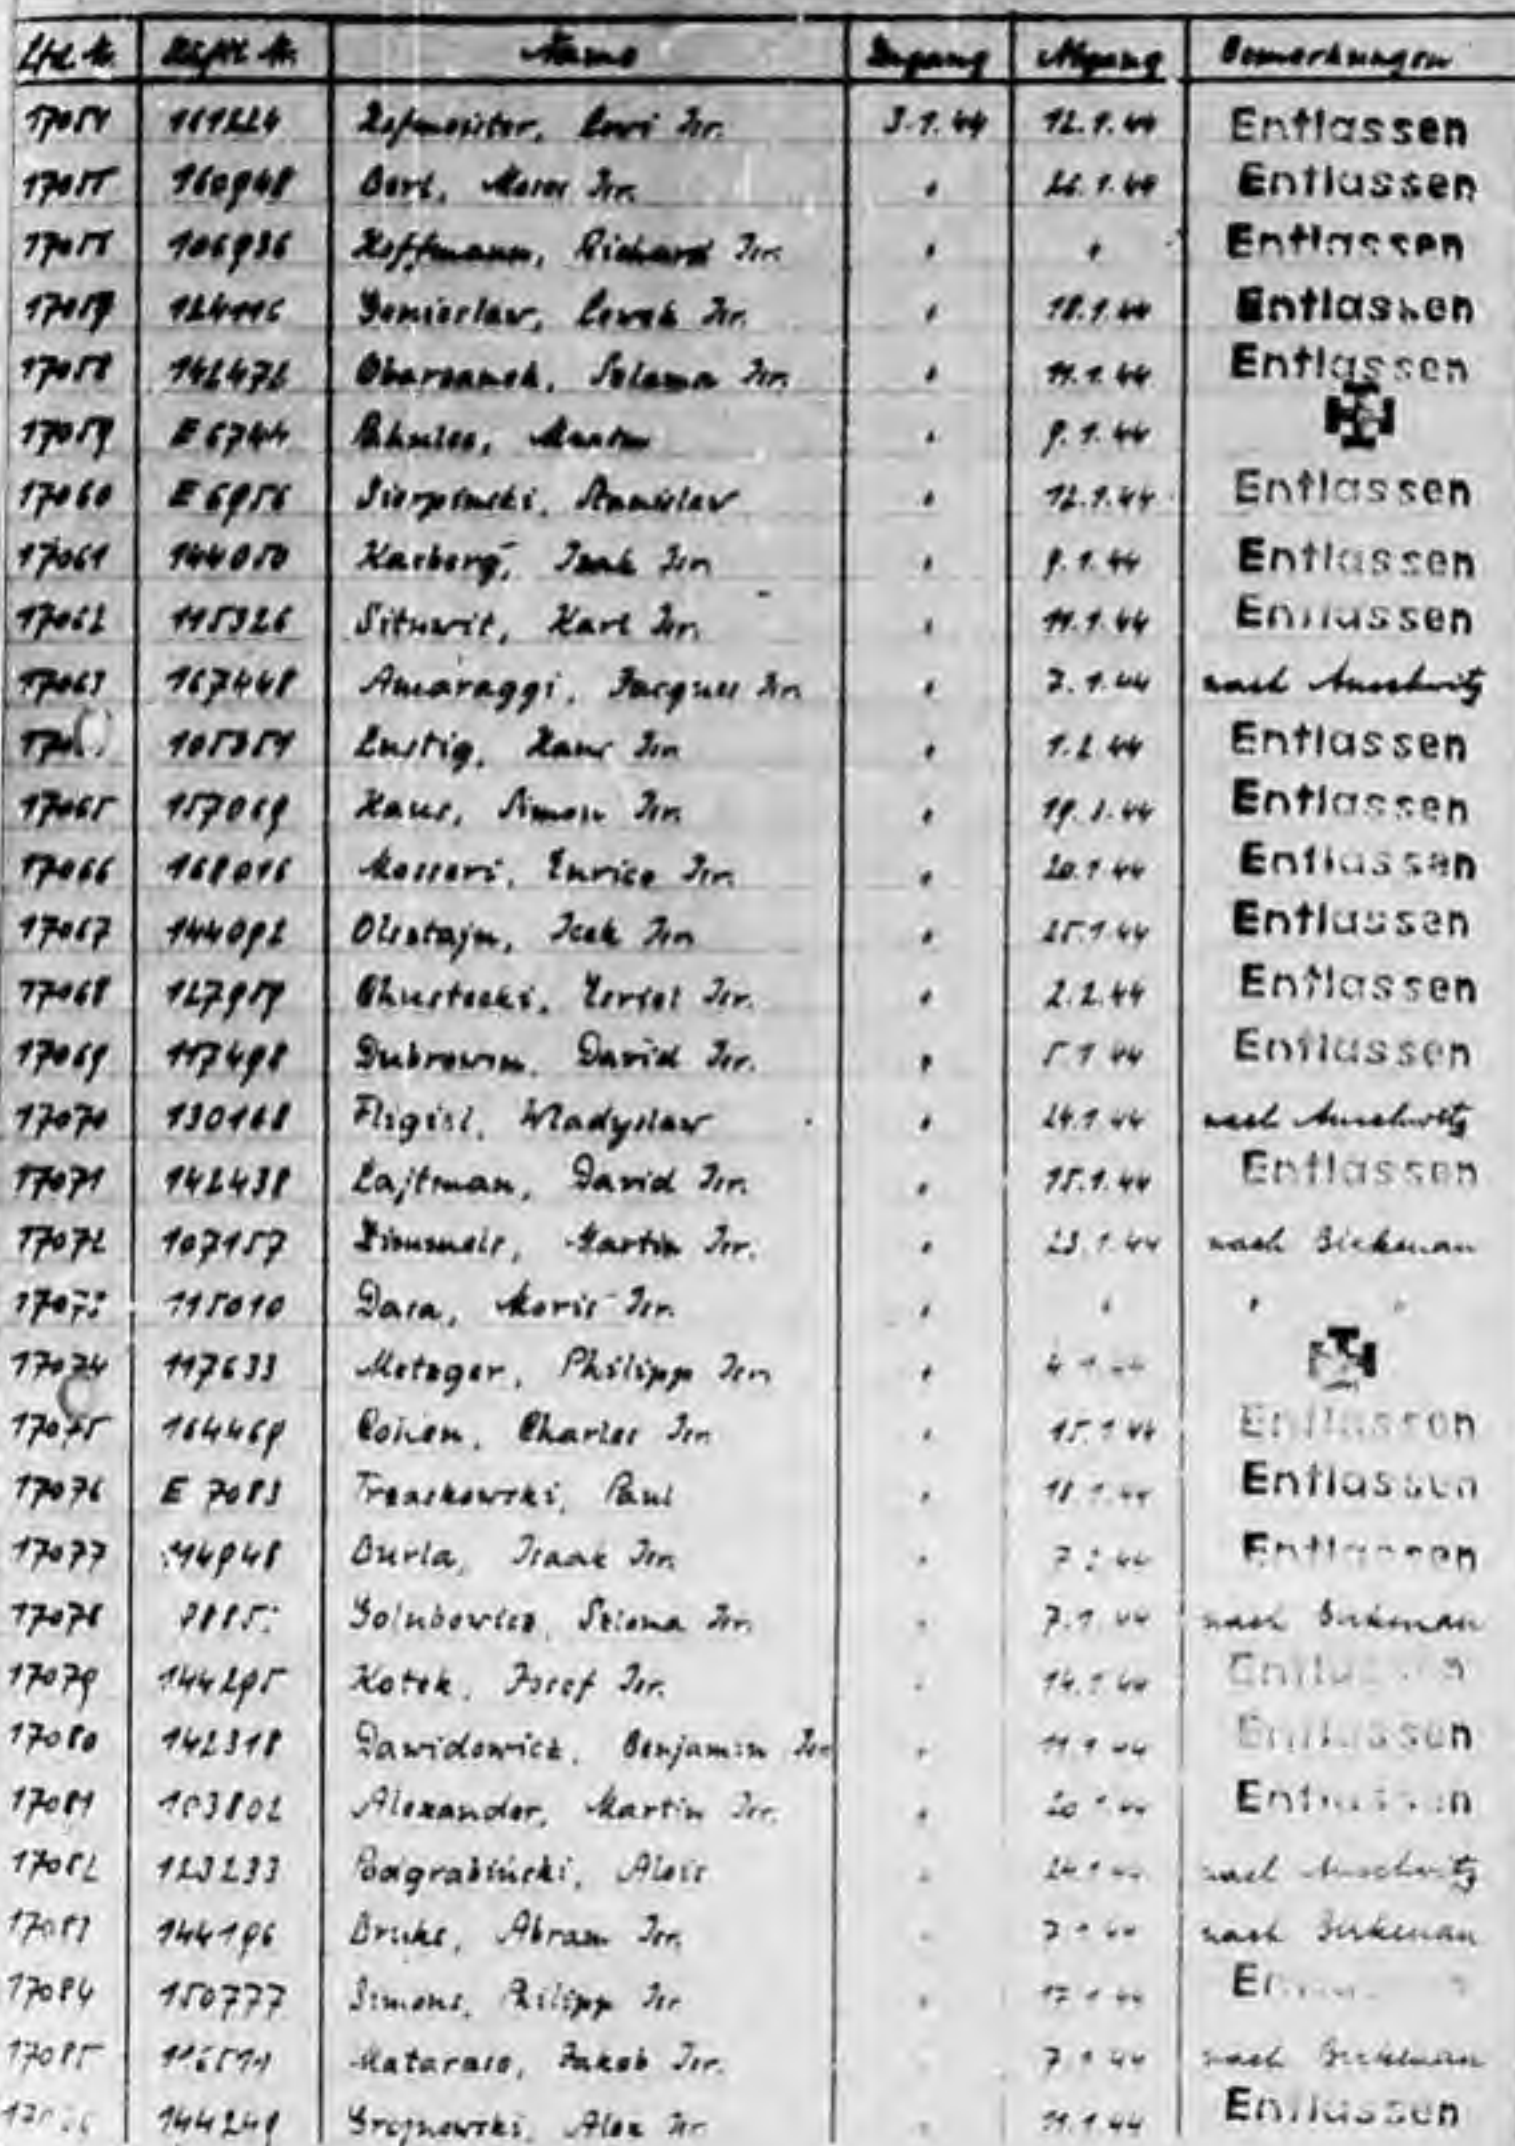 Lfd. Nr. Häftl. Nr. Name Zugang Abgang Bemerkungen
17054 161224 Hofmeister, Levi Isr. 3.1.44 12.1.44 Entlassen
17055 160948 Berl, Moses Isr. " 26.1.44 Entlassen
17056 106936 Hoffmann, Richard Isr. " " Entlassen
17057 124116 Isr. " 18.1.44 Entlassen
17058 142472 Obarzanek, Szlama Isr. " 11.1.44 Entlassen
17059 E 6744 " 9.1.44
17060 E 6956 Sierpinski, Stanislaw " 12.1.44 Entlassen
17061 144050 Karberg, Isak Isr. " 9.1.44 Entlassen
17062 115326 Karl Isr. " 11.1.44 Entlassen
17063 167448 Amaraggi, Jacques Isr. " 7.1.44 nach Auschwitz
105351 Lustig, Hans Isr. " 1.2.44 Entlassen
17065 157069 Haus, Simon Isr. " 19.1.44 Entlassen
17066 168016 Mosseri, Enrico Isr. " 20.1.44 Entlassen
17067 144092 Olsztajn, Icek Isr. " 25.1.44 Entlassen
17068 127959 Chustecki, Isr. " 2.2.44 Entlassen
17069 117498 Dubrowin, David Isr. " 5.1.44 Entlassen
17070 130168 Fligiel, Wladyslaw " 24.1.44 nach Auschwitz
17071 142438 Lajtman, David Isr. " 15.1.44 Entlassen
17072 107157 Martin Isr. " 23.1.44 nach Birkenau
17073 115010 Dasa, Moris Isr. " " " "
17074 117633 Metzger, Philipp Isr. " 4.1.44
17075 164469 Cohen, Charles Isr. " 15.1.44 Entlassen
17076 E 7083 Trzaskowski, Paul " 18.1.44 Entlassen
17077 114948 Burla, Isaak Isr. " 44 Entlassen
17078 Golubowicz, Szloma Isr. " 7.1.44 nach Birkenau
17079 144295 Kotek, Josef Isr. " 14.1.44 Entlassen
17080 142318 Dawidowicz, Benjamin Isr. " 11.1.44 Entlassen
17081 103802 Alexander, Martin Isr. " 20.1.44 Entlassen
17082 123233 Podgrabinski, Alois " 24.1.44 nach Auschwitz
17083 144196 Bruks, Abram Isr. " 7.1.44 nach Birkenau
17084 150777 Simons, Philipp Isr. " 17.1.44
17085 116514 Mataraso, Jakob Isr. " 7.1.44 nach Birkenau
144249 Grojnowski, Alex Isr. " 11.1.44 Entlassen